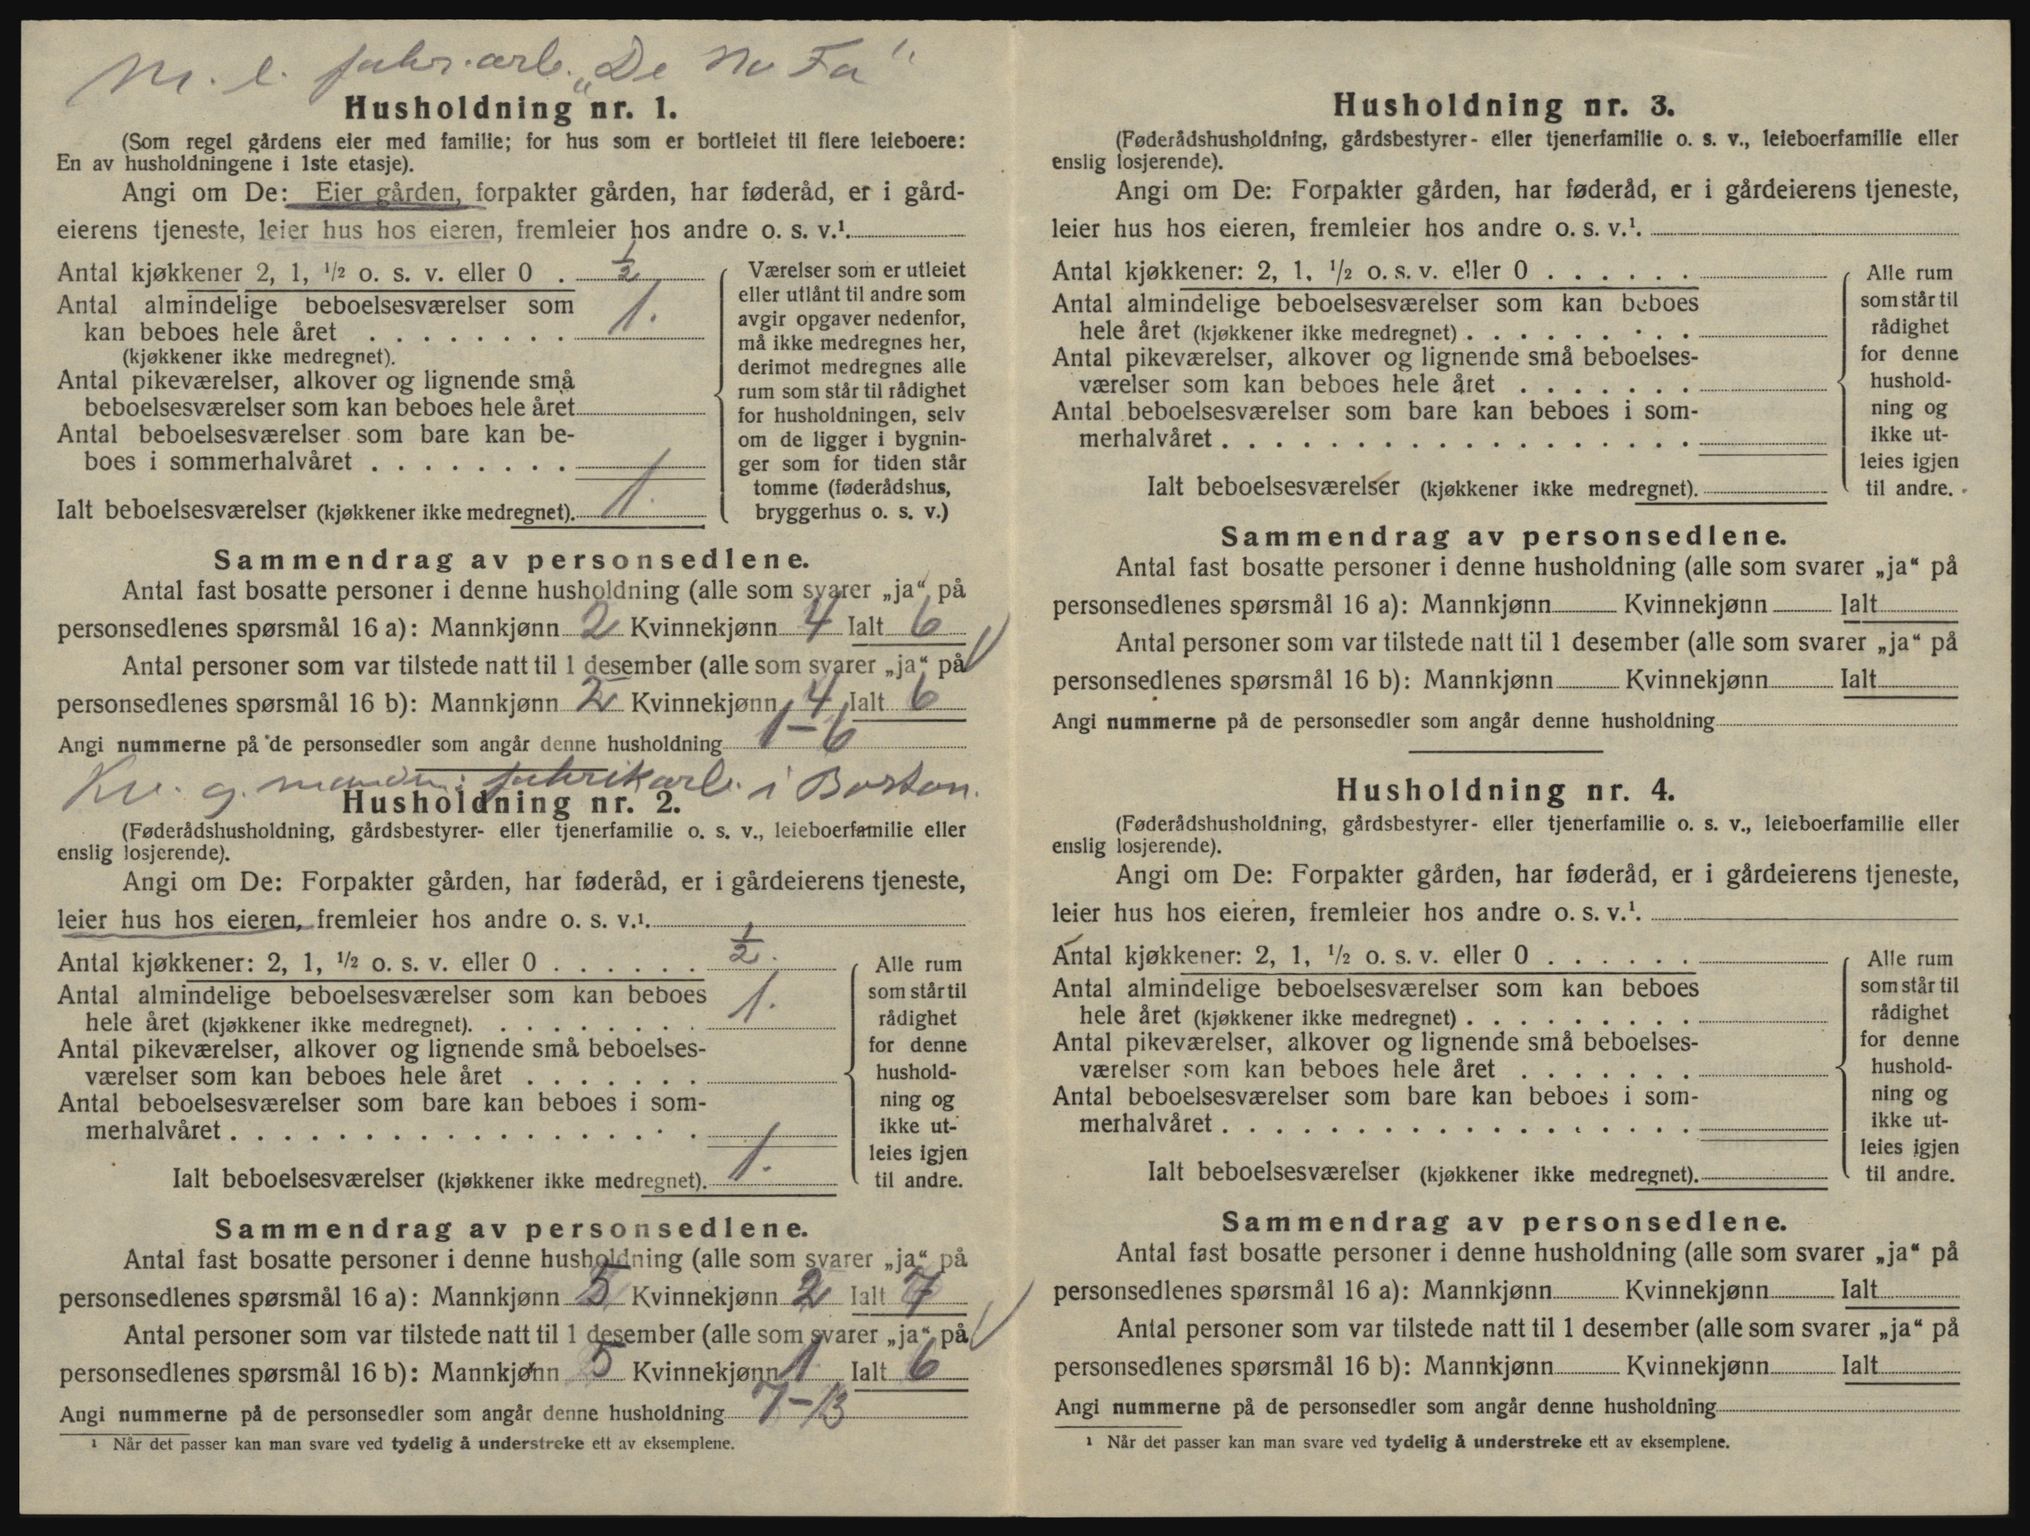 M. l. fabr. arb. „De No Fa"
Husholdning nr. 1.
(Som regel gårdens eier med familie; for hus som er bortleiet til flere leieboere:
En av husholdningene i 1ste etasje).
Angi om De: Eier gården, forpakter gården, har føderåd, er i gård-
eierens tjeneste, leier hus hos eieren, fremleier hos andre o. s. v.¹.
Antal kjøkkener 2, 1, ¹/2 o. s. v. eller 0 . 1/2
Antal almindelige beboelsesværelser som
kan beboes hele året . . . . . . . . 1.
(kjøkkener ikke medregnet).
Antal pikeværelser, alkover og lignende små
beboelsesværelser som kan beboes hele året
Antal beboelsesværelser som bare kan be-
boes i sommerhalvåret . . . . . . . .
Ialt beboelsesværelser (kjøkkener ikke medregnet). 1.
Værelser som er utleiet
eller utlånt til andre som
avgir opgaver nedenfor,
må ikke medregnes her,
derimot medregnes alle
rum som står til rådighet
for husholdningen, selv
om de ligger i bygnin-
ger som for tiden står
tomme (føderådshus,
bryggerhus o. s. v.)
Sammendrag av personsedlene.
Antal fast bosatte personer i denne husholdning (alle som svarer „ja“ på
personsedlenes spørsmål 16 a): Mannkjønn 2 Kvinnekjønn 4 Ialt 6
Antal personer som var tilstede natt til 1 desember (alle som svarer „ja“ på
personsedlenes spørsmål 16 b): Mannkjønn 2 Kvinnekjønn 4 Ialt 6
Angi nummerne på de personsedler som angår denne husholdning 1-6
Kv. g. mandn: fabrikarb. i Boston.
Husholdning nr. 2.
(Føderådshusholdning, gårdsbestyrer- eller tjenerfamilie o. s. v., leieboerfamilie eller
enslig losjerende).
Angi om De: Forpakter gården, har føderåd, er i gårdeierens tjeneste,
leier hus hos eieren, fremleier hos andre o. s. v.¹.
Antal kjøkkener: 2, 1, ¹/2 o. s. v. eller 0 . . . . . . 1/2.
Antal almindelige beboelsesværelser som kan beboes
hele året (kjøkkener ikke medregnet). . . . . . . . . 1.
Antal pikeværelser, alkover og lignende små beboelses-
værelser som kan beboes hele året . . . . . . .
Antal beboelsesværelser som bare kan beboes i som-
merhalvåret . . . . . . . . . . . . . . . . . .
Ialt beboelsesværelser (kjøkkener ikke medregnet). 1.
Alle rum
som står til
rådighet
for denne
hushold-
ning og
ikke ut-
leies igjen
til andre.
Sammendrag av personsedlene.
Antal fast bosatte personer i denne husholdning (alle som svarer „ja“ på
personsedlenes spørsmål 16 a): Mannkjønn 5 Kvinnekjønn 2 Ialt 7
Antal personer som var tilstede natt til 1 desember (alle som svarer „ja“ på
personsedlenes spørsmål 16 b): Mannkjønn 5 Kvinnekjønn 1 Ialt 6
Angi nummerne på de personsedler som angår denne husholdning 7-13
¹ Når det passer kan man svare ved tydelig å understreke ett av eksemplene.
Husholdning nr. 3.
(Føderådshusholdning, gårdsbestyrer- eller tjenerfamilie o. s. v., leieboerfamilie eller
enslig losjerende).
Angi om De: Forpakter gården, har føderåd, er i gårdeierens tjeneste,
leier hus hos eieren, fremleier hos andre o. s. v.¹.
Antal kjøkkener: 2, 1, ¹/2 o. s. v. eller 0 . . . . . .
Antal almindelige beboelsesværelser som kan beboes
hele året (kjøkkener ikke medregnet) . . . . . . . . .
Antal pikeværelser, alkover og lignende små beboelses-
værelser som kan beboes hele året . . . . . . .
Antal beboelsesværelser som bare kan beboes i som-
merhalvåret . . . . . . . . . . . . . . . . . .
Ialt beboelsesværelser (kjøkkener ikke medregnet).
Alle rum
som står til
rådighet
for denne
hushold-
ning og
ikke ut-
leies igjen
til andre.
Sammendrag av personsedlene.
Antal fast bosatte personer i denne husholdning (alle som svarer „ja“ på
personsedlenes spørsmål 16 a): Mannkjønn Kvinnekjønn Ialt
Antal personer som var tilstede natt til 1 desember (alle som svarer „ja“ på
personsedlenes spørsmål 16 b): Mannkjønn Kvinnekjønn Ialt
Angi nummerne på de personsedler som angår denne husholdning
Husholdning nr. 4.
(Føderådshusholdning, gårdsbestyrer- eller tjenerfamilie o. s. v., leieboerfamilie eller
enslig losjerende).
Angi om De: Forpakter gården, har føderåd, er i gårdeierens tjeneste,
leier hus hos eieren, fremleier hos andre o. s. v.¹.
Antal kjøkkener: 2, 1, ¹/2 o. s. v. eller 0 . . . . . .
Antal almindelige beboelsesværelser som kan beboes
hele året (kjøkkener ikke medregnet) . . . . . . . . .
Antal pikeværelser, alkover og lignende små beboelses-
værelser som kan beboes hele året . . . . . . .
Antal beboelsesværelser som bare kan beboes i som-
merhalvåret . . . . . . . . . . . . . . . . . .
Ialt beboelsesværelser (kjøkkener ikke medregnet).
Alle rum
som står til
rådighet
for denne
hushold-
ning og
ikke ut-
leies igjen
til andre.
Sammendrag av personsedlene.
Antal fast bosatte personer i denne husholdning (alle som svarer „ja“ på
personsedlenes spørsmål 16 a): Mannkjønn Kvinnekjønn Ialt
Antal personer som var tilstede natt til 1 desember (alle som svarer „ja“ på
personsedlenes spørsmål 16 b): Mannkjønn Kvinnekjønn Ialt
Angi nummerne på de personsedler som angår denne husholdning
¹ Når det passer kan man svare ved tydelig å understreke ett av eksemplene.